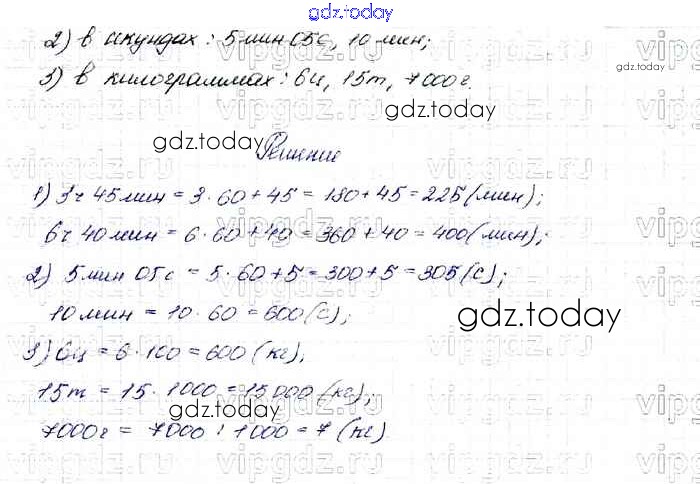 gdz.today
2) в секундах: 5 мин 05с, 10 мин;
gdz.today
3) в килограммах: 6ц, 15т, 7000г.
gdz.today
gdz.today
Решение
1) 3ч 45мин = 3·60+45 = 180+45 = 225(мин);
6ч 40мин = 6·60+40 = 360+40 = 400(мин);
2) 5мин 05с = 5·60+5 = 300+5 = 305(с);
10мин = 10·60 = 600(с);
gdz.today
3) 6ц = 6·100 = 600(кг);
15т = 15·1000 = 15000(кг);
gdz.today
7000г = 7000:1000 = 7(кг)
vipgdz.ru